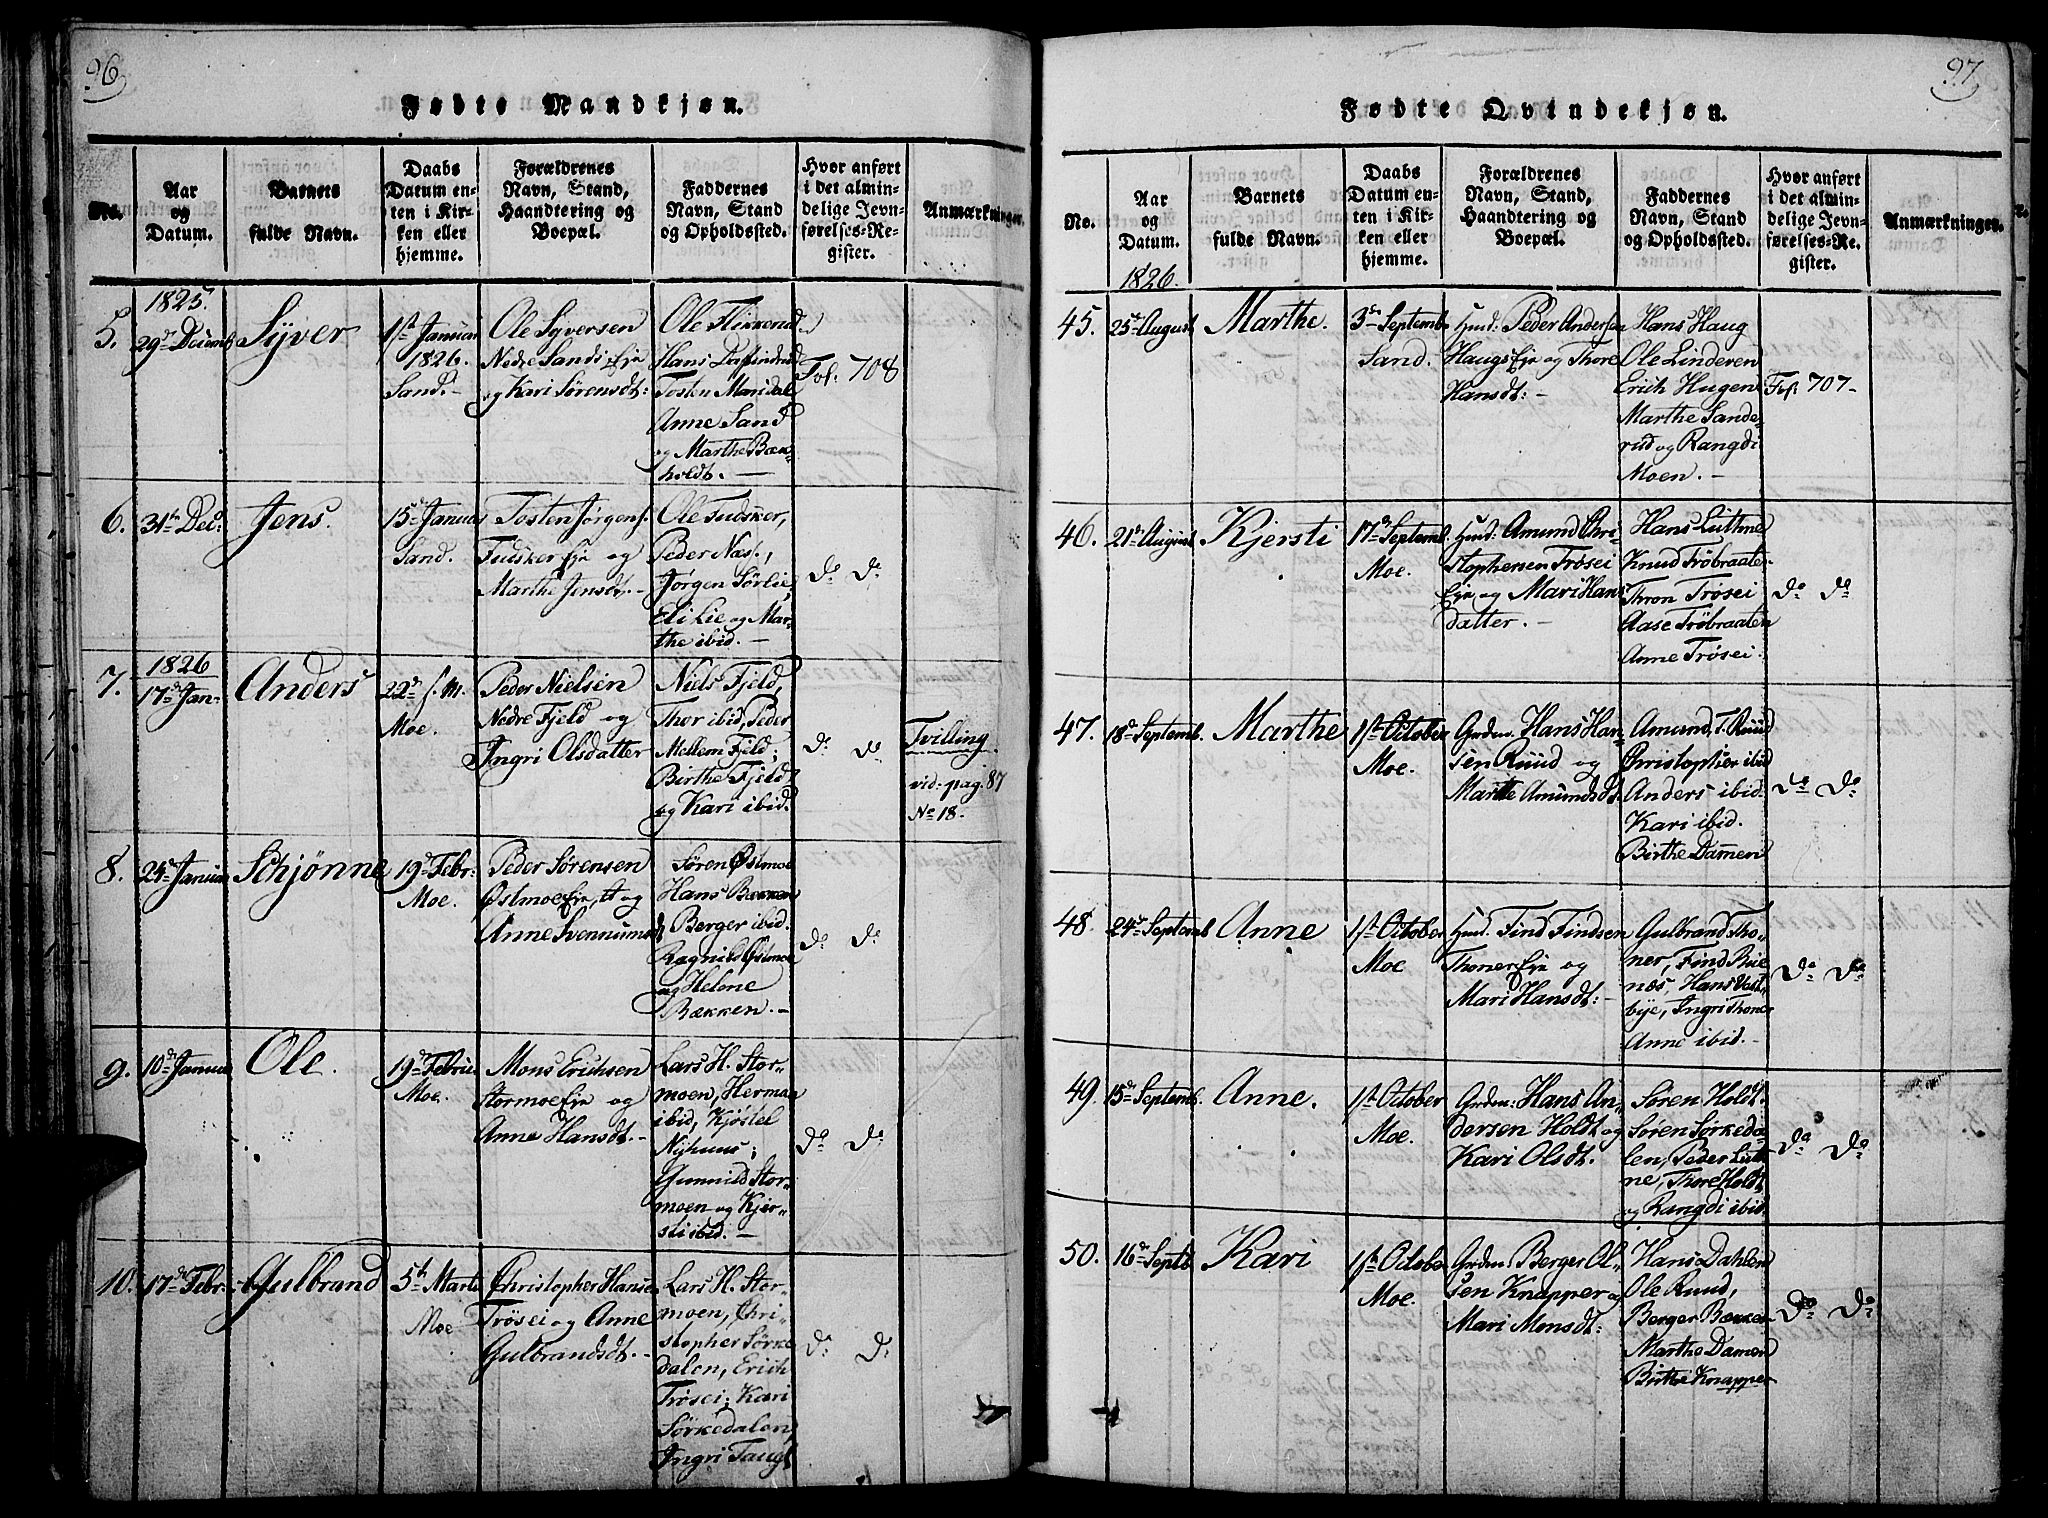 96
Fødte Mandkjøn.
No.
Aar
og
Datum.
Barnets
fulde Navn.
Daabs
Datum en-
ten i Kir-
ken eller
hjemme.
Forældrenes
Navn, Stand,
Haandtering og
Boepæl.
Faddernes
Navn, Stand
og Opholdssted.
Hvor anført
i det almin-
delige Jevn-
førelses-Re-
gister.
Anmærkninger.
5.
1825
29de Decemb
Syver
1ste Januar
1826.
Sand.
Ole Syversen
Nedre Sands Eje
og Kari Sørensdt:
Ole
Hans
Tosten Maridal
Anne Sand
og Marthe Bæn-
holdt. —
Fol: 708
6.
31te Dec:
Jens.
15de Januar
Sand.
Tosten Jørgens:
Tudsker Eje og
Marthe Jensdt. —
Ole Tudsker,
Peder Næs,
Jørgen Sørlie,
Eli Lie og Mar-
the ibid. —
do do
7.
1826
17de Jan-
Anders
22de s. M.
Moe.
Peder Nielsen
Nedre Fjeld og
Ingri Olsdatter
Niels Fjeld,
Thor ibid, Peder
Mellem Fjeld;
Birthe Fjeld
og Kari ibid.
do do
Tvilling
vid: pag. 87
No 18.
8.
24de Januar
Schjønne
19de Febr:
Moe.
Peder Sørensen
Østmoe Eje, og
Anne Svennumsdt
Søren Østmoe
Hans Bækken
Berger ibid.
Ragnild Østmoe
og Helene
Bækken. —
do do
9.
10de Januar
Ole.
19de Febru
Moe.
Mons Erichsen
Stormoe Eje og
Anne Hansdt. —
Lars H. Stor-
moen, Herman
ibid, Kjøstel
Nyhuus;
Gunnild Stor-
moen og Kjer-
sti ibid. —
do do
10.
17de Febr.
Gulbrand
5te Marts
Moe
Christopher Hansen
Trøsei og Anne
Gulbrandsdt. —
Lars H. Stor-
moen, Chri-
stopher Sørke
dalen, Erich
Trøsei; Kari
Sørkedalen,
Ingri Taugl
do do
97
Fødte Qvindekjøn.
No.
Aar
og
Datum.
Barnets
fulde Navn.
Daabs
Datum en-
ten i Kir-
ken eller
hjemme.
Forældrenes
Navn, Stand,
Haandtering og
Boepæl.
Faddernes
Navn, Stand
og Opholdssted.
Hvor anført
i det almin-
delige Jevn-
førelses-Re-
gister.
Anmærkninger.
1826.
45.
25de August
Marthe.
3de Septemb
Sand.
Huusm: Peder Andersen
Haugs Eje og Thore
Hansdt: —
Hans Haug
Ole Linderen
Erich Hugen
Marthe Sande-
rud og Rangdi
Moen. —
Fol: 707-
46.
21de August
Kjersti
17de Septemb.
Moe.
Huusm: Amund Chri-
stophersen Trøsei
Eje og Mari Hans
datter. —
Hans Luthne
Knud Trøbraaten
Thron Trøsei
Aase Trøbraaten
Anne Trøsei.
do do
47.
18de Septemb.
Marthe
1ste October
Moe.
Grdm. Hans Han-
sen Ruud og
Marthe Amundsdt.
Amund T. Ruud
Christopher ibid
Anders ibid
Kari ibid.
Birthe Damen
do do
48.
24de Septemb
Anne
1ste October
Moe
Huusm: Find Findsen
Thoner Eje og
Mari Hansdt: —
Gulbrand Tho-
ner, Find Bue
næs, Hans Vest-
bye, Ingri Thoner
Anne ibid. —
do do
49.
15de Septemb.
Anne.
1ste October
Moe.
Grdm: Hans An-
dersen Holdt og
Kari Olsdt.
Søren Holdt.
Søren Sørkeda-
len, Peder Luth
ne, Thore Holdt,
og Rangdi ibid.
do do
50.
16de Septb
Kari
1ste October
Moe.
Grdm. Berger Ol-
sen Knapper og
Mari Monsdt:
Hans Dahlen
Ole Ruud,
Berger Bækken
Marthe Damen
Birthe Knapper
do do